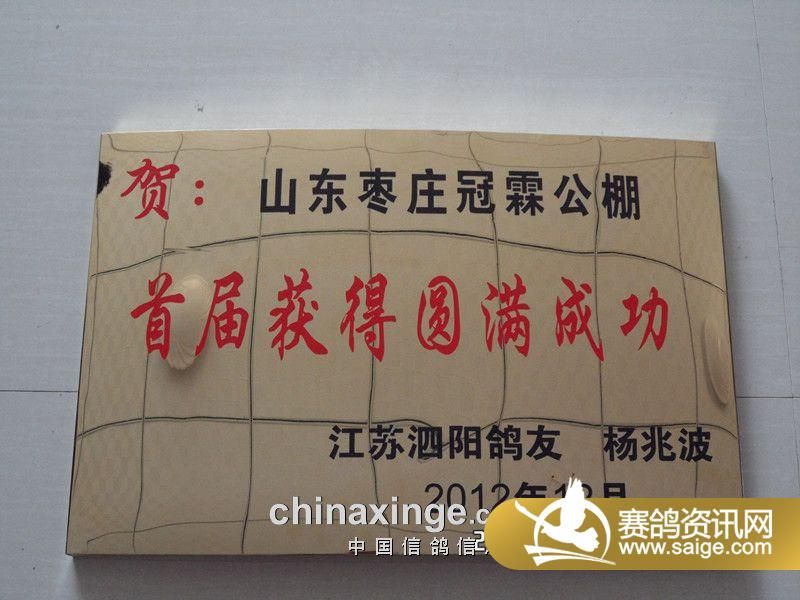 贺： 山东枣庄冠霖公棚
首届获得圆满成功
江苏泗阳鸽友 杨兆波
2012年12月
chinaxinge.c
中国信鸽信
赛鸽资讯网
www.saige.com